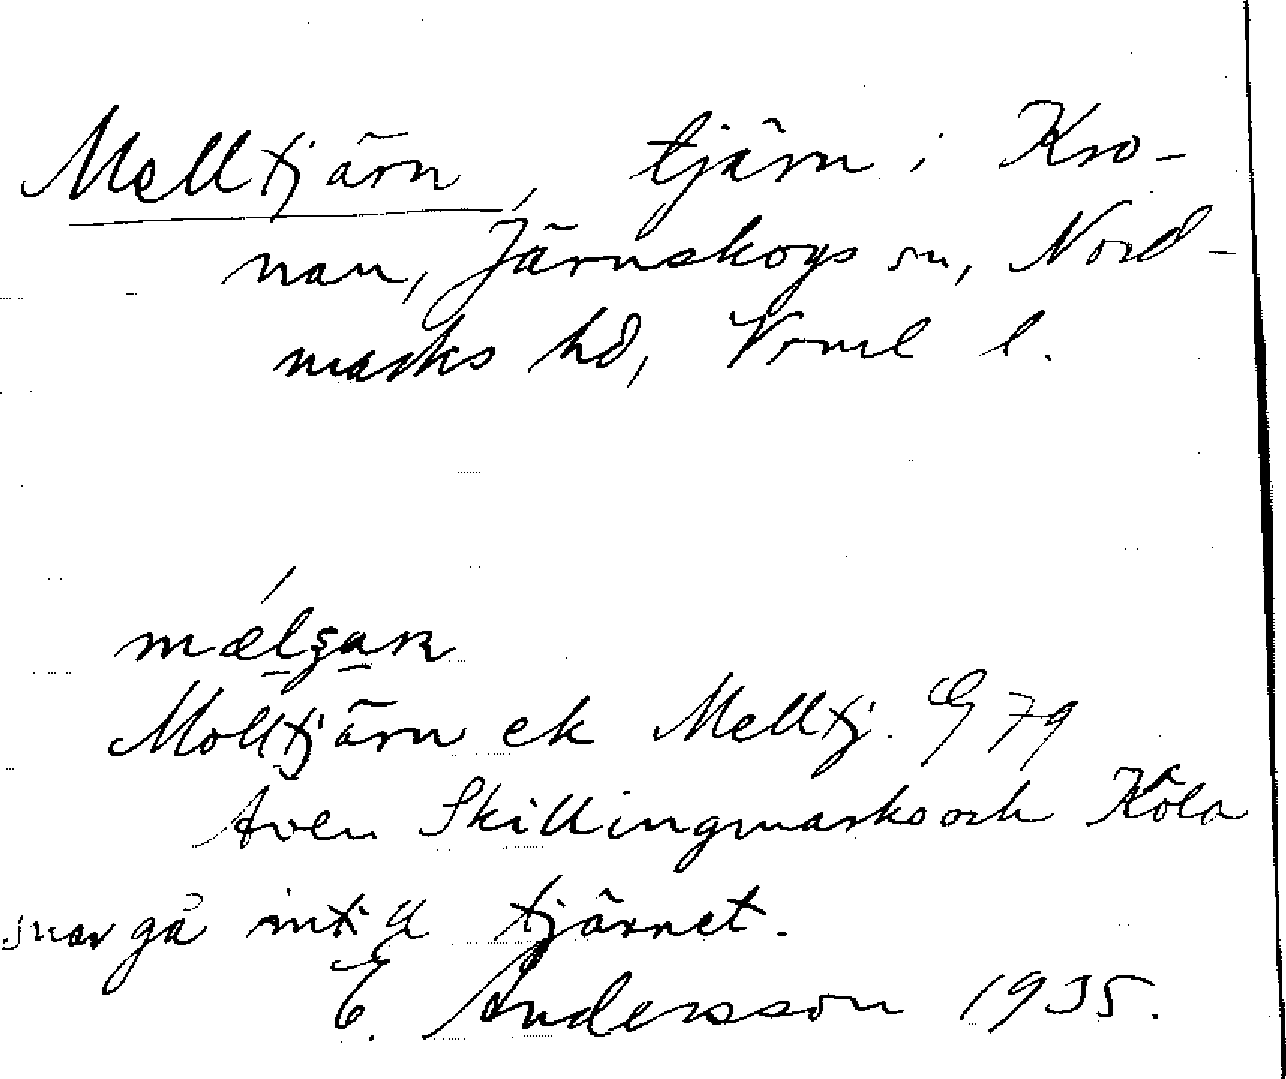 Melltjärn, tjärn i Kro-
nan, Järnskogs sn, Nord-
marks hd, Vrml l.
Molltjärn ek Melltj. G 79
Även Skillingmarks och Köla
snar gå intill tjärnet.
E. Andersson 1935.